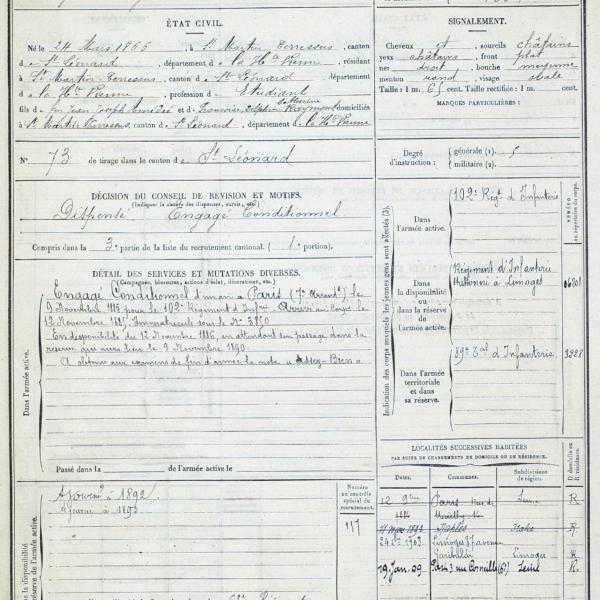 ÉTAT CIVIL.
Né le 24 Mars 1866, à St Martin Terressus, canton
de St Léonard, département de la Hte Vienne, résidant
à St Martin Terressus, canton de St Léonard, département
de la Hte Vienne, profession de Etudiant
fils de feu Jean Joseph et de Raymond, domiciliés
à St Martin Terressus, canton de St Léonard, département de la Hte Vienne
No 73 de tirage dans le canton de St Léonard
DÉCISION DU CONSEIL DE REVISION ET MOTIFS.
(Indiquer la cause des dispenses, sursis, etc.)
Dispensé Engagé Conditionnel
Compris dans la 3e partie de la liste du recrutement cantonal. (1e portion).
DÉTAIL DES SERVICES ET MUTATIONS DIVERSES.
(Campagnes, blessures, actions d'éclat, décorations, etc.)
Engagé Conditionnel d'un an à Paris (7e Arrondt) le
9 Novembre 1885 pour le 102e Régiment d'Infrie Arrivé au Corps le
12 Novembre 1885. Immatriculé sous le No 3850
En disponibilité du 12 Novembre 1886, en attendant son passage dans la
réserve qui aura lieu le 9 Novembre 1890
A obtenu aux examens de fin d'année la note « Assez-Bien »
Dans l'armée active.
Passé dans la de l'armée active le
1892
1893
Numéro
au contrôle
spécial du
recrutement.
117
Dans la disponibilité
réserve de l'armée active.
SIGNALEMENT.
Cheveux et sourcils châtains
yeux châtains front plat
nez droit bouche moyenne
menton rond visage ovale
Taille : 1 m. 65 cent. Taille rectifiée : 1 m. cent.
MARQUES PARTICULIÈRES :
Degré d'instruction :
générale (1). 5
militaire (2).
Indication des corps auxquels les jeunes gens sont affectés (3).
NUMÉRO
au répertoire du corps.
Dans
l'armée active.
102e Régt d'Infanterie
Dans
la disponibilité
ou dans
la réserve
de l'armée active.
Régiment d'Infanterie
stationné à Limoges
Dans l'armée
territoriale
et dans
sa réserve.
89e Tal d'Infanterie
3228
LOCALITÉS SUCCESSIVES HABITÉES
PAR SUITE DE CHANGEMENTS DE DOMICILE OU DE RÉSIDENCE.
Dates. Communes. Subdivisions de région. D domicile ou R résidence.
Paris Seine R
Naples Italie R
1903 Limoges
Garibaldi Limoges R
19 Jan. 09 Paris 3 rue Corneille (6e) Seine R.